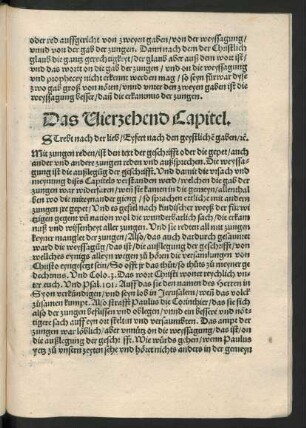 oder red auffgericht von zweyen gaben/von der weyssagung/
vnnd von der gab der zungen. Dann nach dem der Christlich
glaub die gantz gerechtigkeyt/der glaub aber auß dem wort ist/
vnd das wort on die gab der zungen/vnd on die weyssagung
vnd prophecey nit erkent werden mag/so seyn fürwar dyse
zwo gab groß von nöten/vnnd vnter den zweyen gaben ist die
weyssagung besser/dañ die erkantnus der zungen.
Das Vierzehend Capitel.
Strebt nach der lieb/Eyfert nach den geystlichē gaben/ꝛc̄.
Mit zungen reden/ist den text der geschrifft oder die gepet/auch
ander wie andere zungen reden vnd außsprechen. Die weyssa-
gung ist die außlegūg der geschrifft. Vnd damit die vrsach vnd
meynung diszs Capitels verstanden werd/haben ob der gab der
zungen war widerfaren/wen sie kamen in die gemeyn/allenthal
ben wo sie mit einander giong/so sprachen etlich mit andern
zungen ye gepet/Vnd es geschach nach kindischer weyß der für wi
tzigen gegen vñ nation wol die wunderbarlich sach/die erkant
nuß vnd wissenheyt aller zungen. Vnd sie redten all mit zungen
keyner mangelt der zungen/Also/das auch dardurch gesaumet
ward die weyssagūg/das ist/die außlegung der geschrifft/von
welches eynigen alleyn wegen zu hören die versamlungen von
Christo eyngesetzt sein/So offt jr das thūt/so thūts zu meyner ge
dechtnus. Vnd Colo.3. Das wort Christi wone reychlich vnter
euch. Vnd Psal.101. Auff das sie den namen des Herren in
Syon verkündigen/vnd seyn lob in Jerusalem/weñ das volck
zusamen kumpt. Also strafft Paulus die Corinthier/das sie sich
also der zungen beflissen vnd oblegen/vnd ein besser vnd nöt-
tigere sach auff eyn ort stelten vnd versaumbten. Das ampt der
zungen war löblich/aber vnnütz on die weyssagung/das ist/on
die außlegung der geschrifft. Wie würds gehen/wenn Paulus
yetz zu vnsern zeyten sehe vnd höret nichts anders in der gemeyn